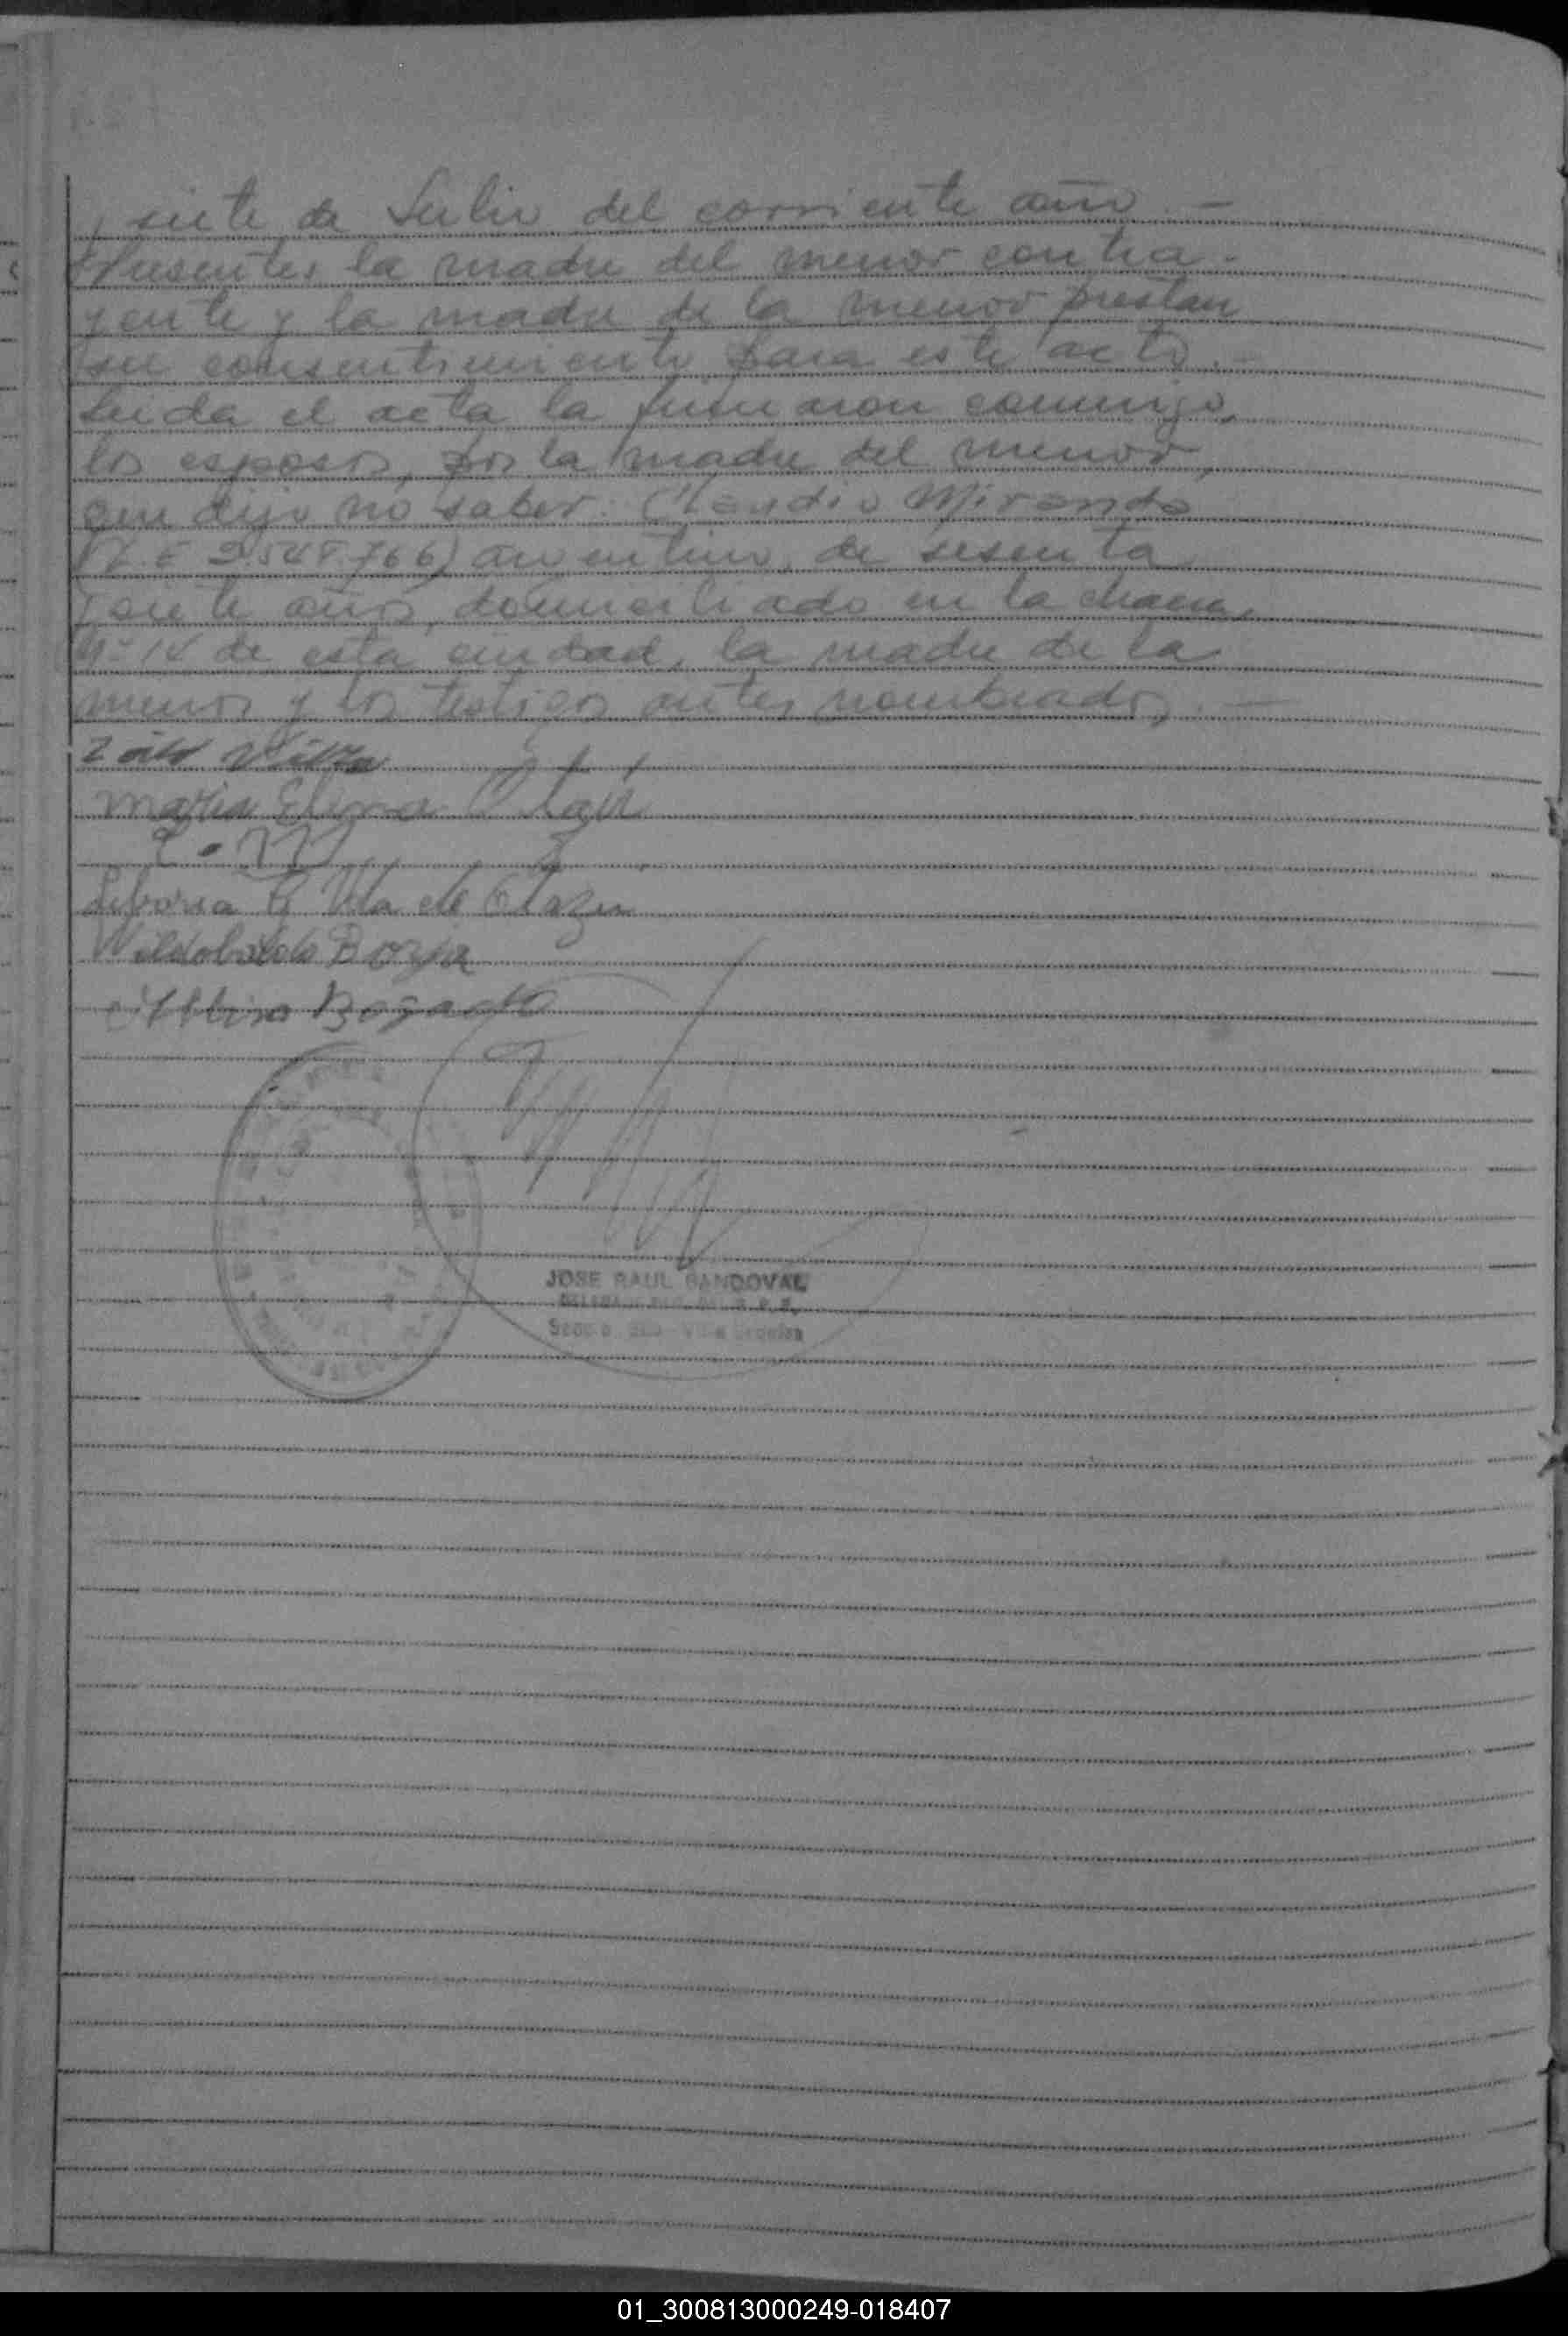 y siete de Julio del corriente año. —
Presentes la madre del menor contra-
yente y la madre de la menor prestan
su consentimiento para este acto. —
Leida el acta la firmaron conmigo,
los esposos, por la madre del menor,
que dijo no saber: Claudio Miranda
argentino, de sesenta
y siete años, domiciliado en la chacra
Nº 14 de esta ciudad, la madre de la
menor y los testigos antes nombrados. —
Zoilo Villa
Maria Elena
C. M
Liboria Vda de Olazu
Wildobaldo Borja
Albino Bogado
JOSE RAUL SANDOVAL
01_300813000249-018407